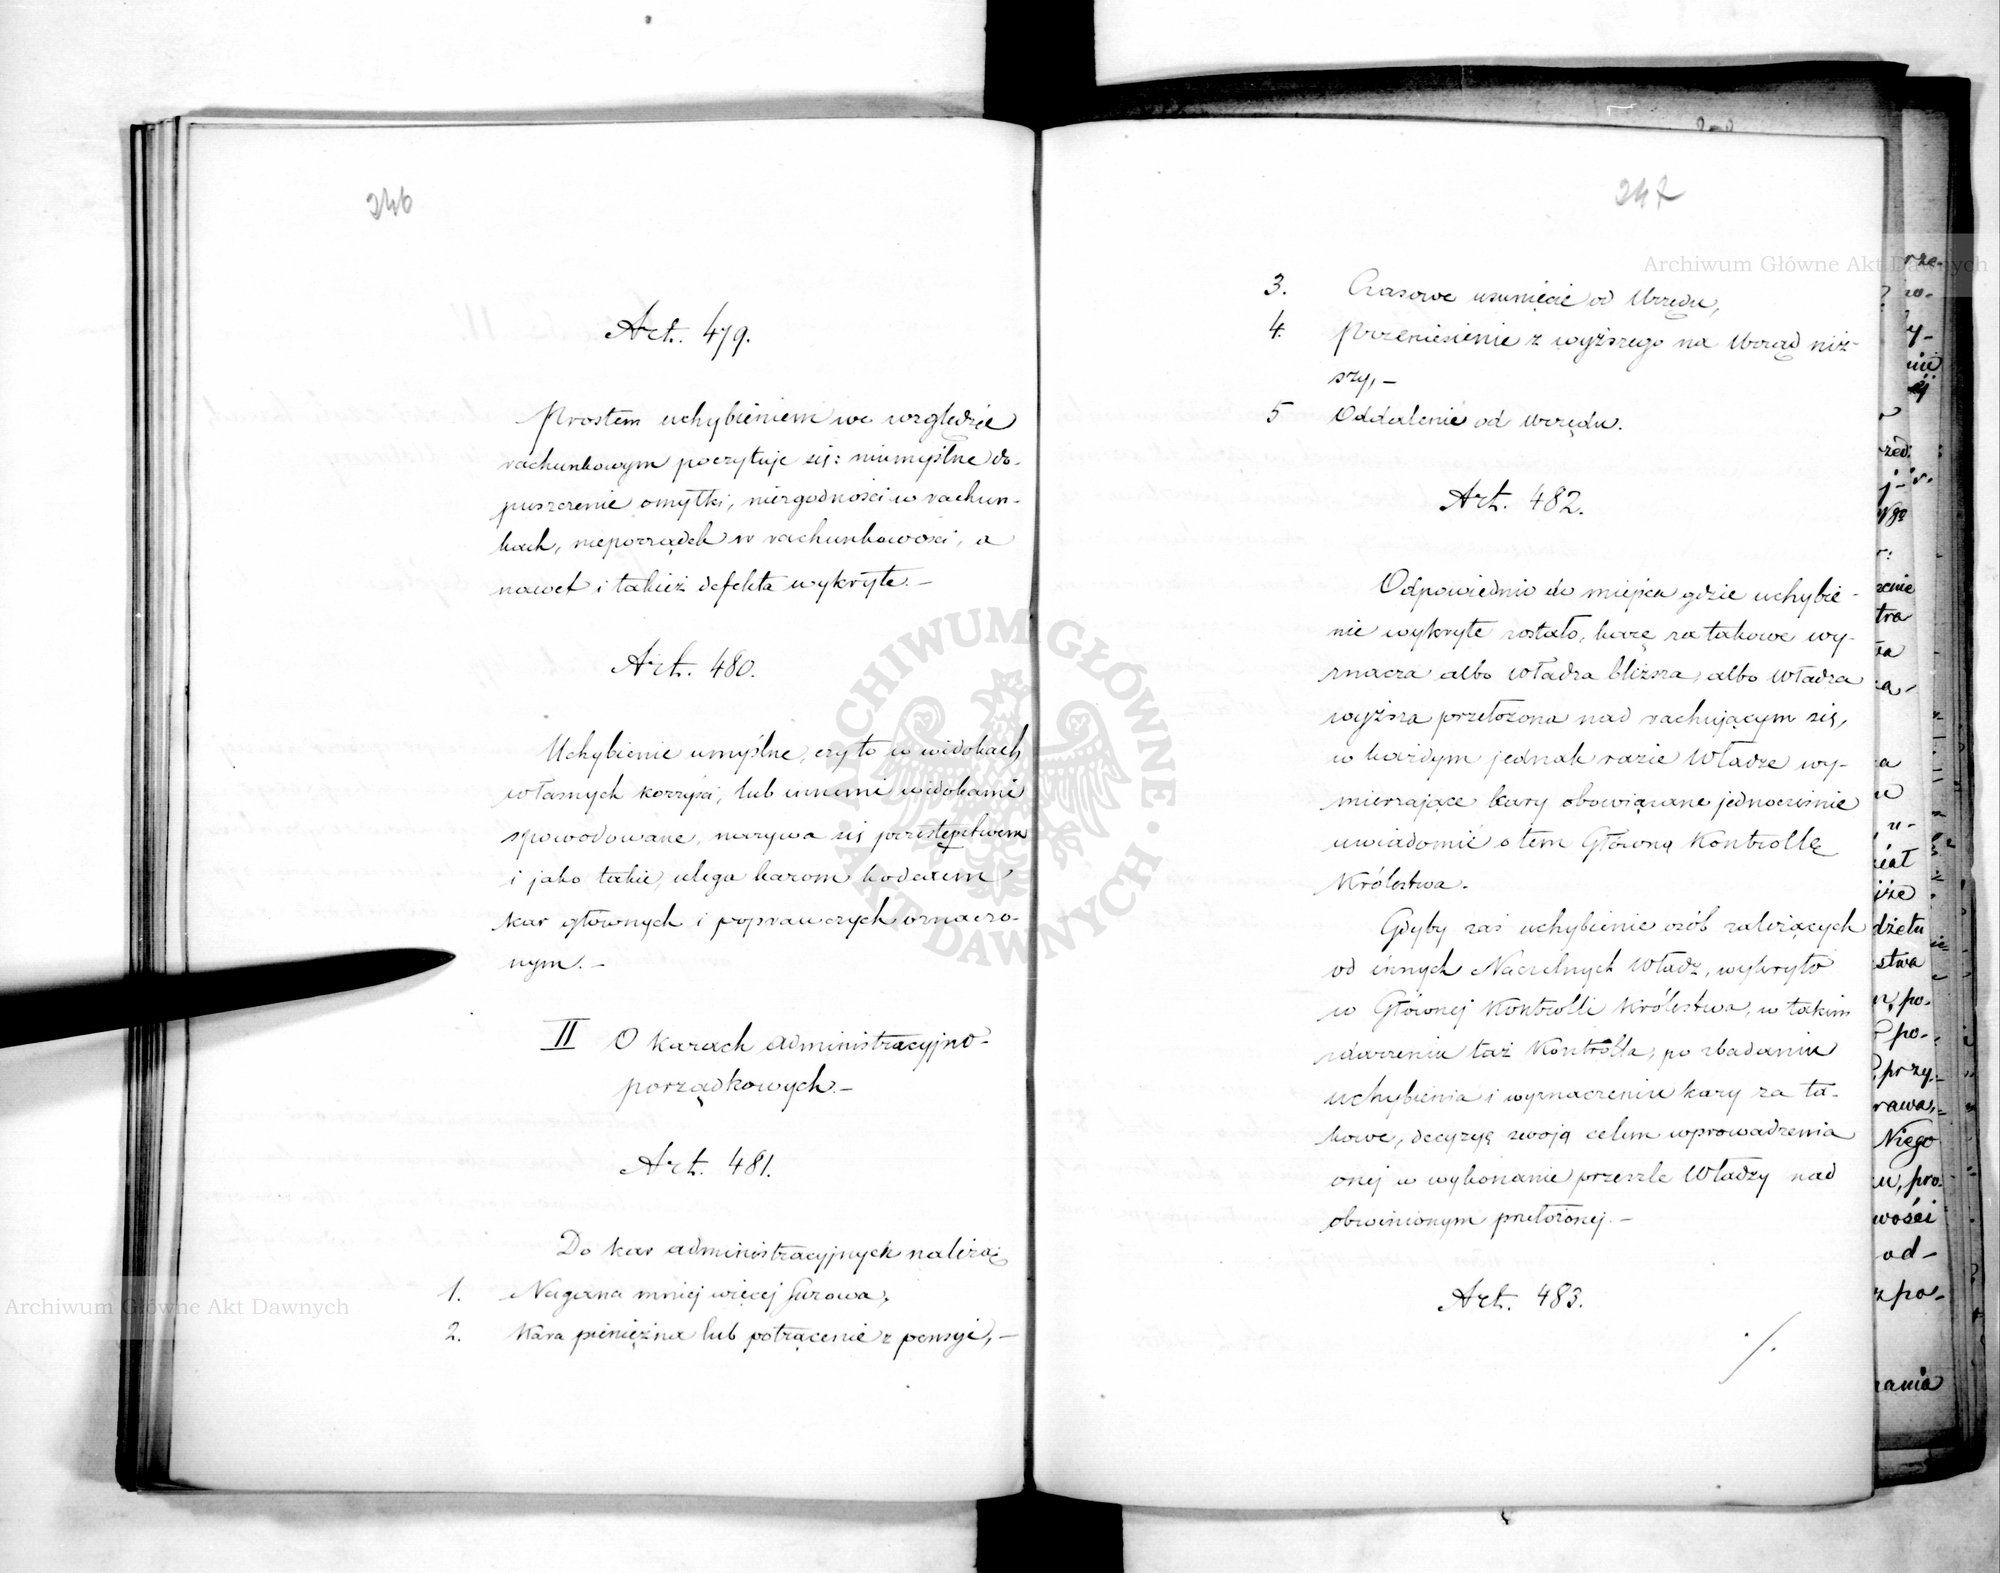 246
Art. 479.
Prostem uchybieniem we względzie
rachunkowym poczytuje się: nieumyślne do-
puszczenie omyłki, niezgodności w rachun-
kach, nieporządek w rachunkowości, a
nawet i takież defekta wykryte.—
Art. 480.
Uchybienie umyślne, czy to w widokach
własnych korzyści, lub innemi widokami
spowodowane, nazywa się przestępstwem
i jako takie, ulega karom kodexem
kar głównych i poprawczych oznaczo-
nym.—
II O karach administracyjno-
porządkowych.—
Art. 481.
Do kar administracyjnych należą:
1. Nagana mniej więcej surowa,
2. Kara pieniężna lub potrącenie z pensyi,—
247
3. Czasowe usunięcie od Urzędu,
4. Przeniesienie z wyższego na Urząd niż-
szy,—
5 Oddalenie od Urzędu.
Art. 482.
Odpowiednio do miejsca gdzie uchybie-
nie wykryte zostało, karę za takowe wy-
znacza albo Władza bliższa, albo Władza
wyższa przełożona nad rachującym się,
w każdym jednak razie Władze wy-
mierzające kary obowiązane jednocześnie
uwiadomić o tem Główną Kontrollę
Królestwa.
Gdyby zaś uchybienie osób zależących
od innych Naczelnych Władz, wykryto
w Głównej Kontrolli Królestwa, w takim
zdarzeniu taż Kontrolla, po zbadaniu
uchybienia i wyznaczeniu kary za ta-
kowe, decyzyę swoją celem wprowadzenia
onej w wykonanie prześle Władzy nad
obwinionym przełożonej.—
Art. 483.
./.
Archiwum Główne Akt Dawnych
Archiwum Główne Akt Dawnych
ARCHIWUM GŁÓWNE · AKT DAWNYCH ·